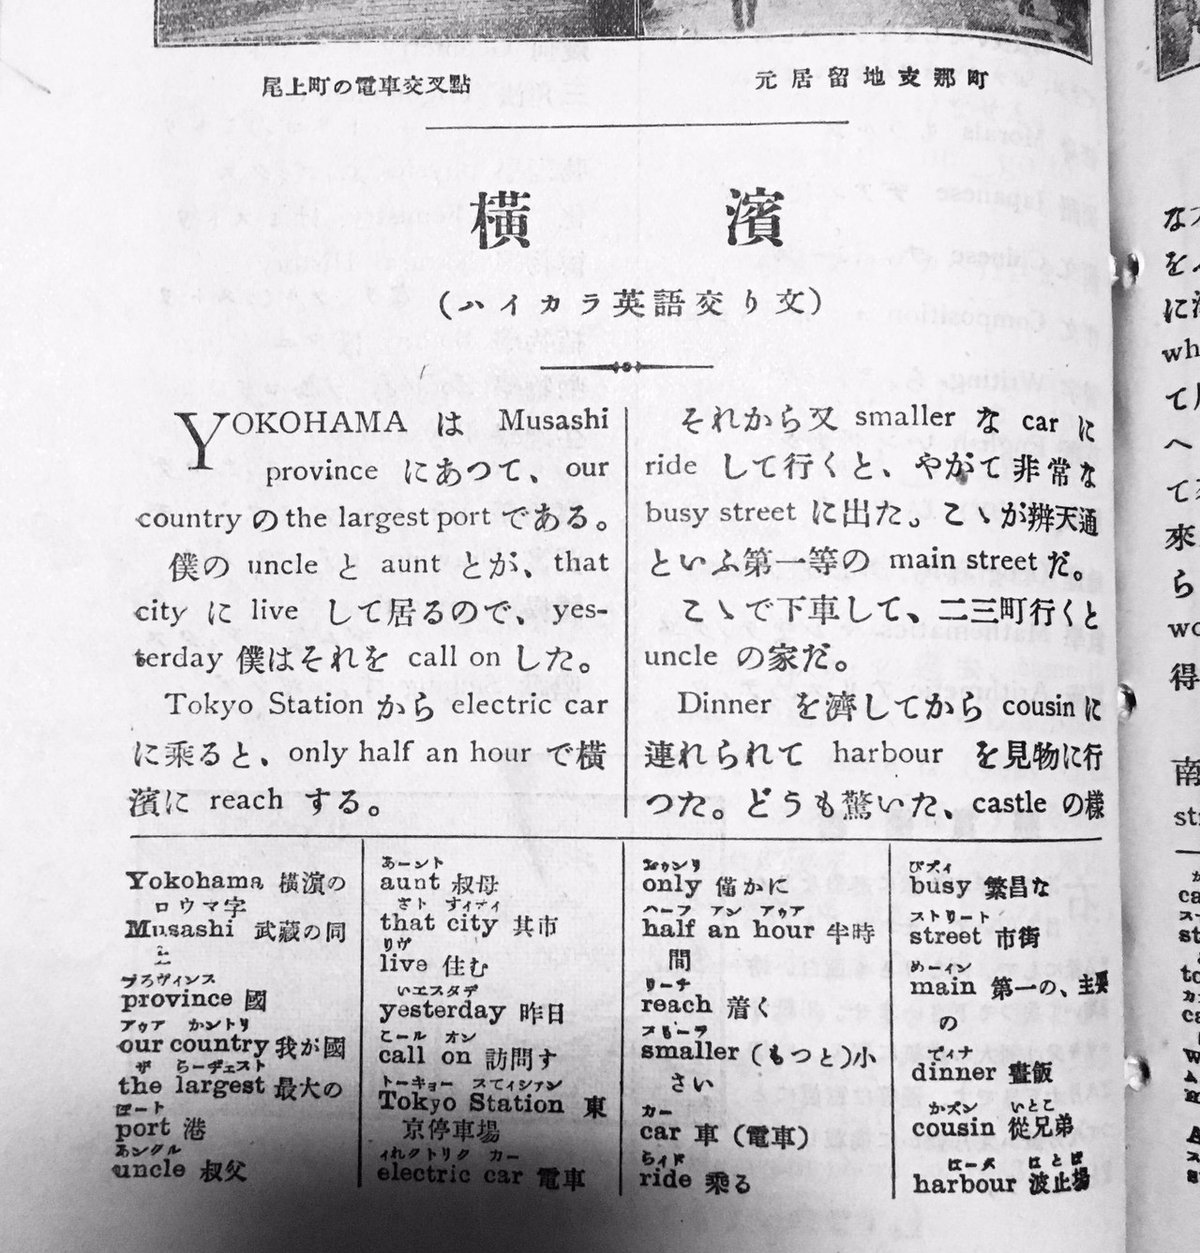 尾上町の電車交叉點
元居留地支那町
橫濱
(ハイカラ英語交り文)
YOKOHAMA は Musashi
province にあつて、our
country の the largest port である。
僕の uncle と aunt とが、that
city に live して居るので、yes-
terday 僕はそれを call on した。
Tokyo Station から electric car
に乘ると、only half an hour で橫
濱に reach する。
それから又 smaller な car に
ride して行くと、やがて非常な
busy street に出た。こゝが辨天通
といふ第一等の main street だ。
こゝで下車して、二三町行くと
uncle の家だ。
Dinner を濟してから cousin に
連れられて harbour を見物に行
つた。どうも驚いた、castle の樣
Yokohama 橫濱の
ロウマ字
Musashi 武藏の同
上
プろヴィンス
province 國
アゥア かントリ
our country 我が國
ザ らーヂェスト
the largest 最大の
ぽート
port 港
あンクル
uncle 叔父
あーント
aunt 叔母
ざト すィティ
that city 其市
リヴ
live 住む
いエスタデ
yesterday 昨日
こール オン
call on 訪問す
トーキョー すてィシァン
Tokyo Station 東
京停車場
ィれクトリク カー
electric car 電車
おゥンリ
only 僅かに
ハーフ アン アゥア
half an hour 半時
間
リーチ
reach 着く
スもーラ
smaller (もつと)小
さい
カー
car 車 (電車)
らィド
ride 乘る
びズィ
busy 繁昌な
ストリート
street 市街
めーイン
main 第一の、主要
の
でィナ
dinner 晝飯
かズン いとこ
cousin 從兄弟
はーバ はとば
harbour 波止塲